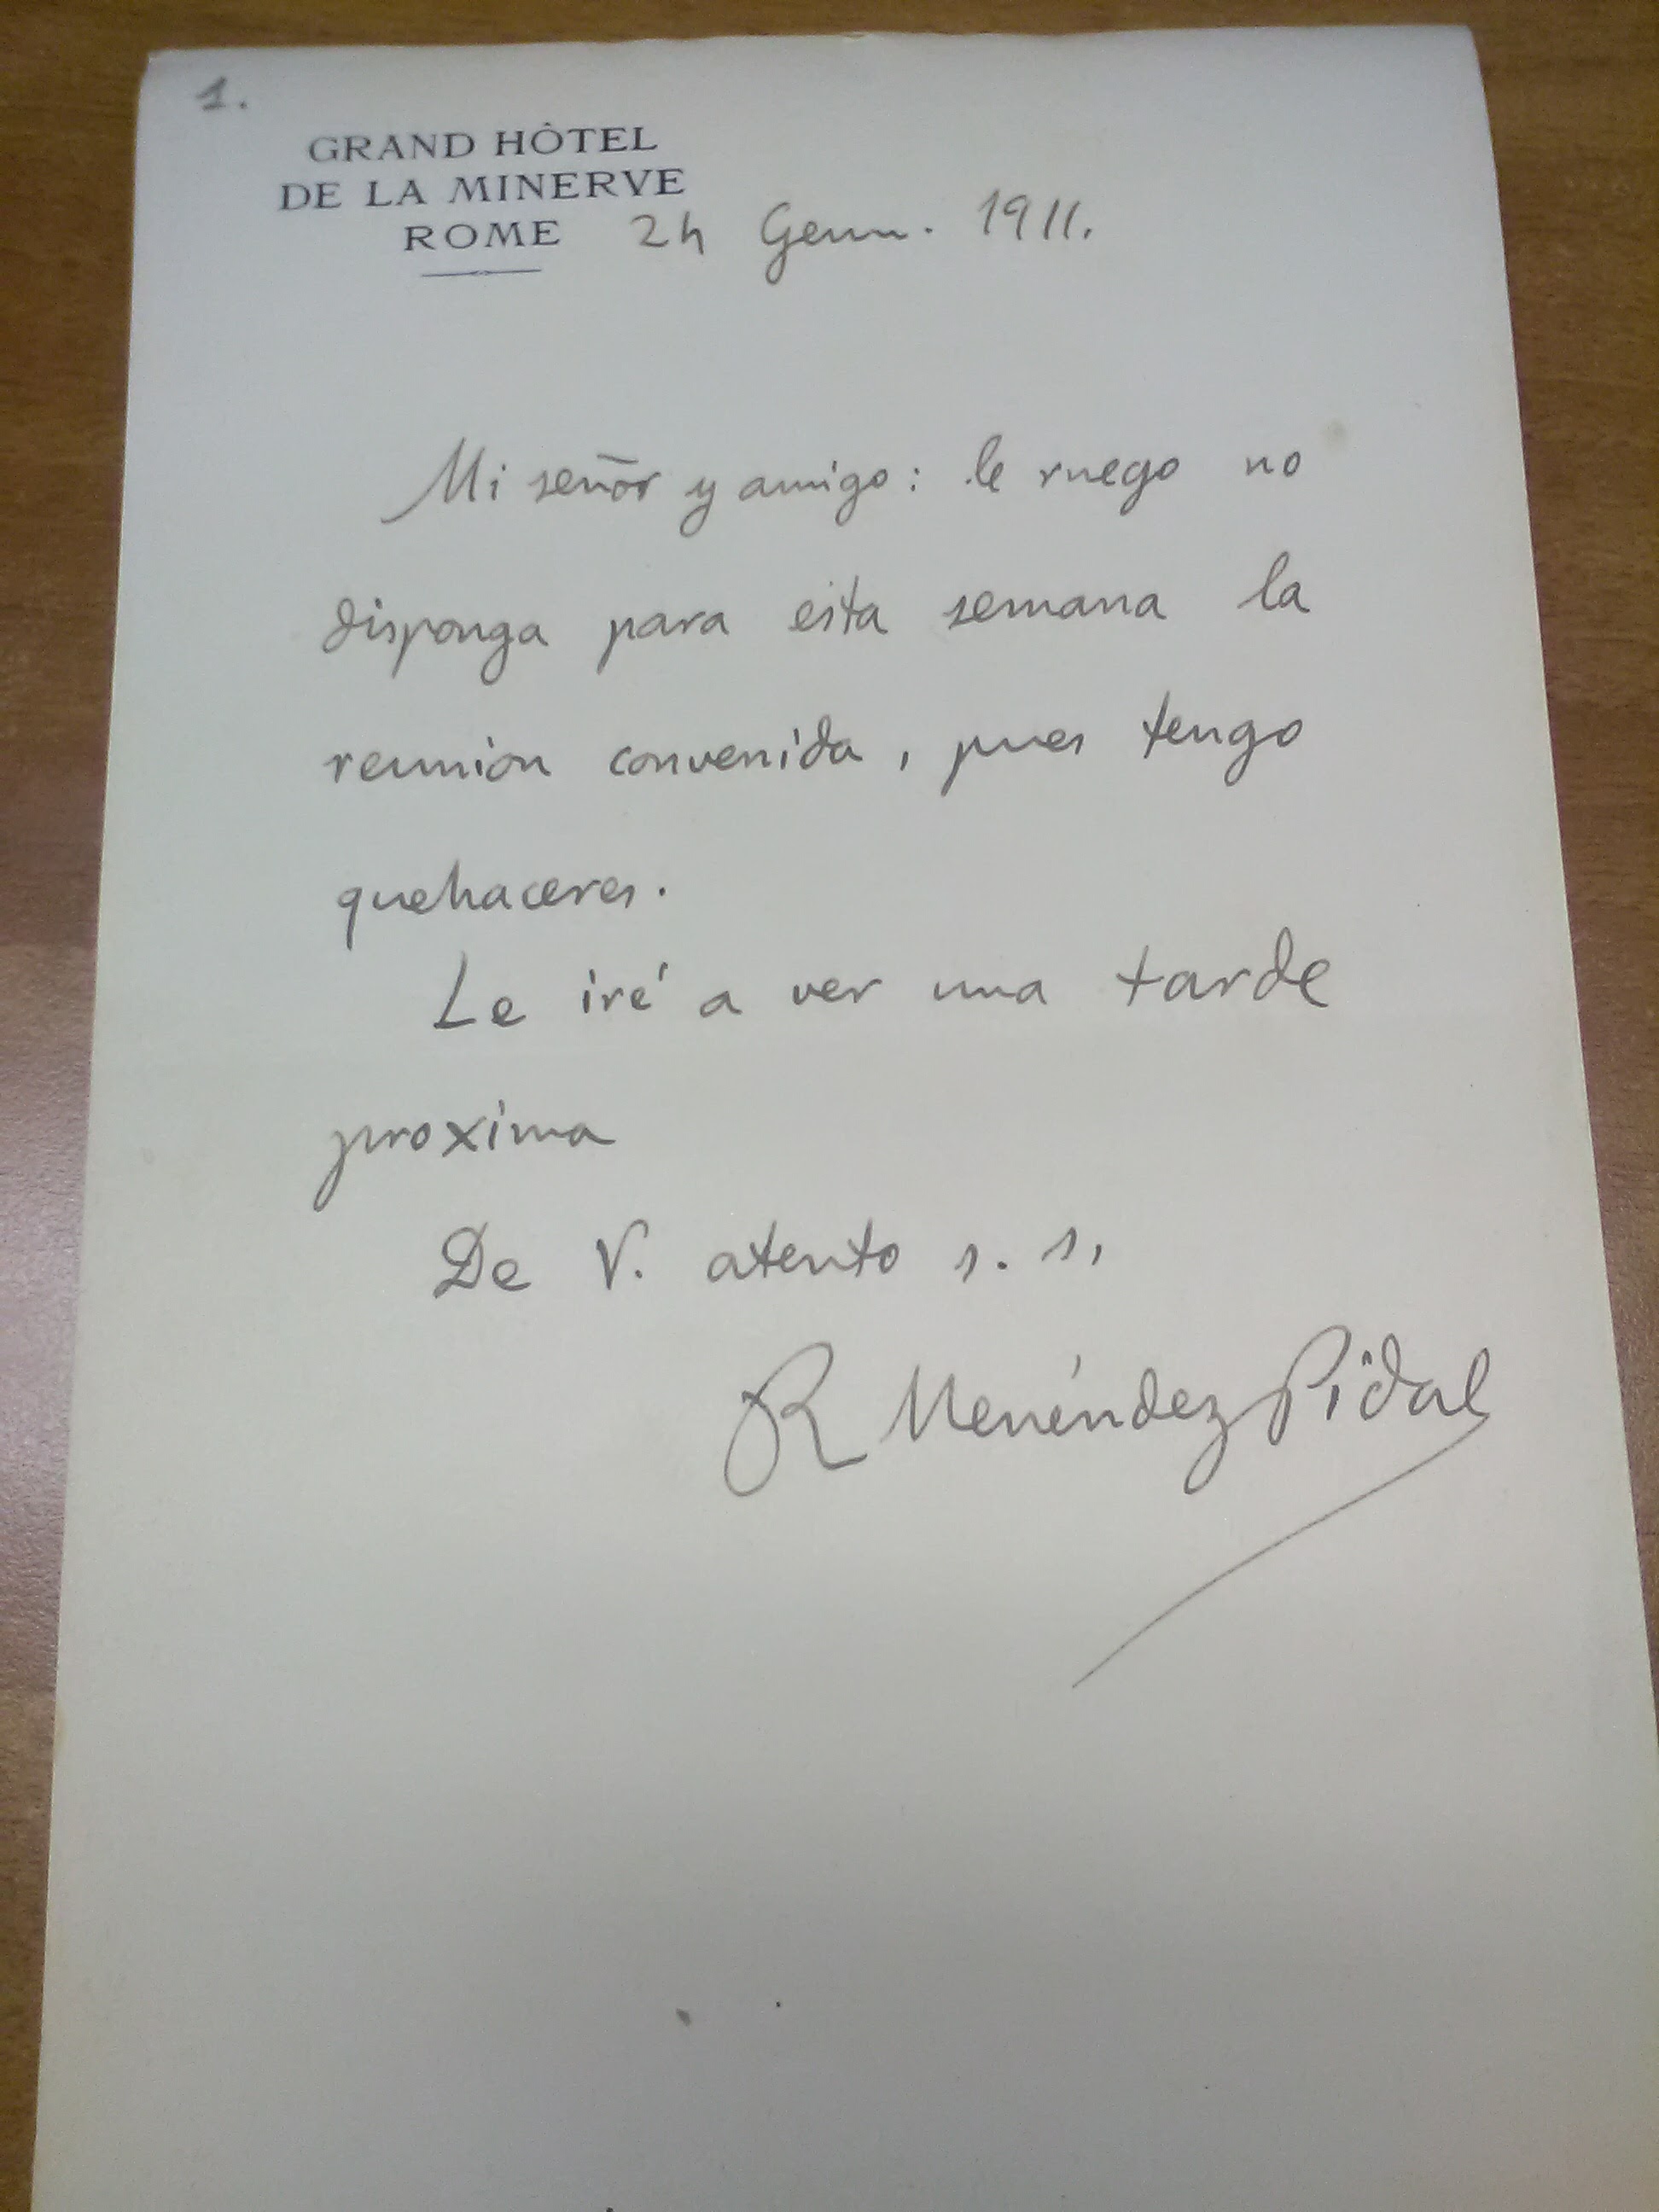 1.
GRAND HÔTEL
DE LA MINERVE
ROME 24 Genn. 1911.
Mi señor y amigo: le ruego no
disponga para esta semana la
reunion convenida, pues tengo
quehaceres.
Le iré a ver una tarde
proxima
De V. atento s. s.
R Menéndez Pidal